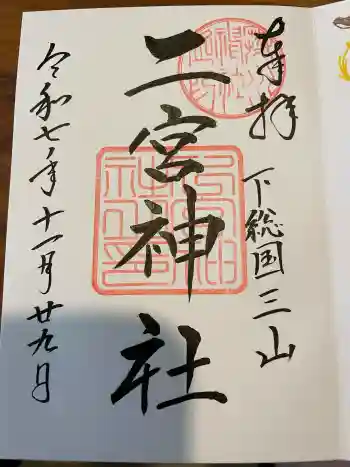 奉拝
下総国三山
二宮神社
令和七年十一月廿九日